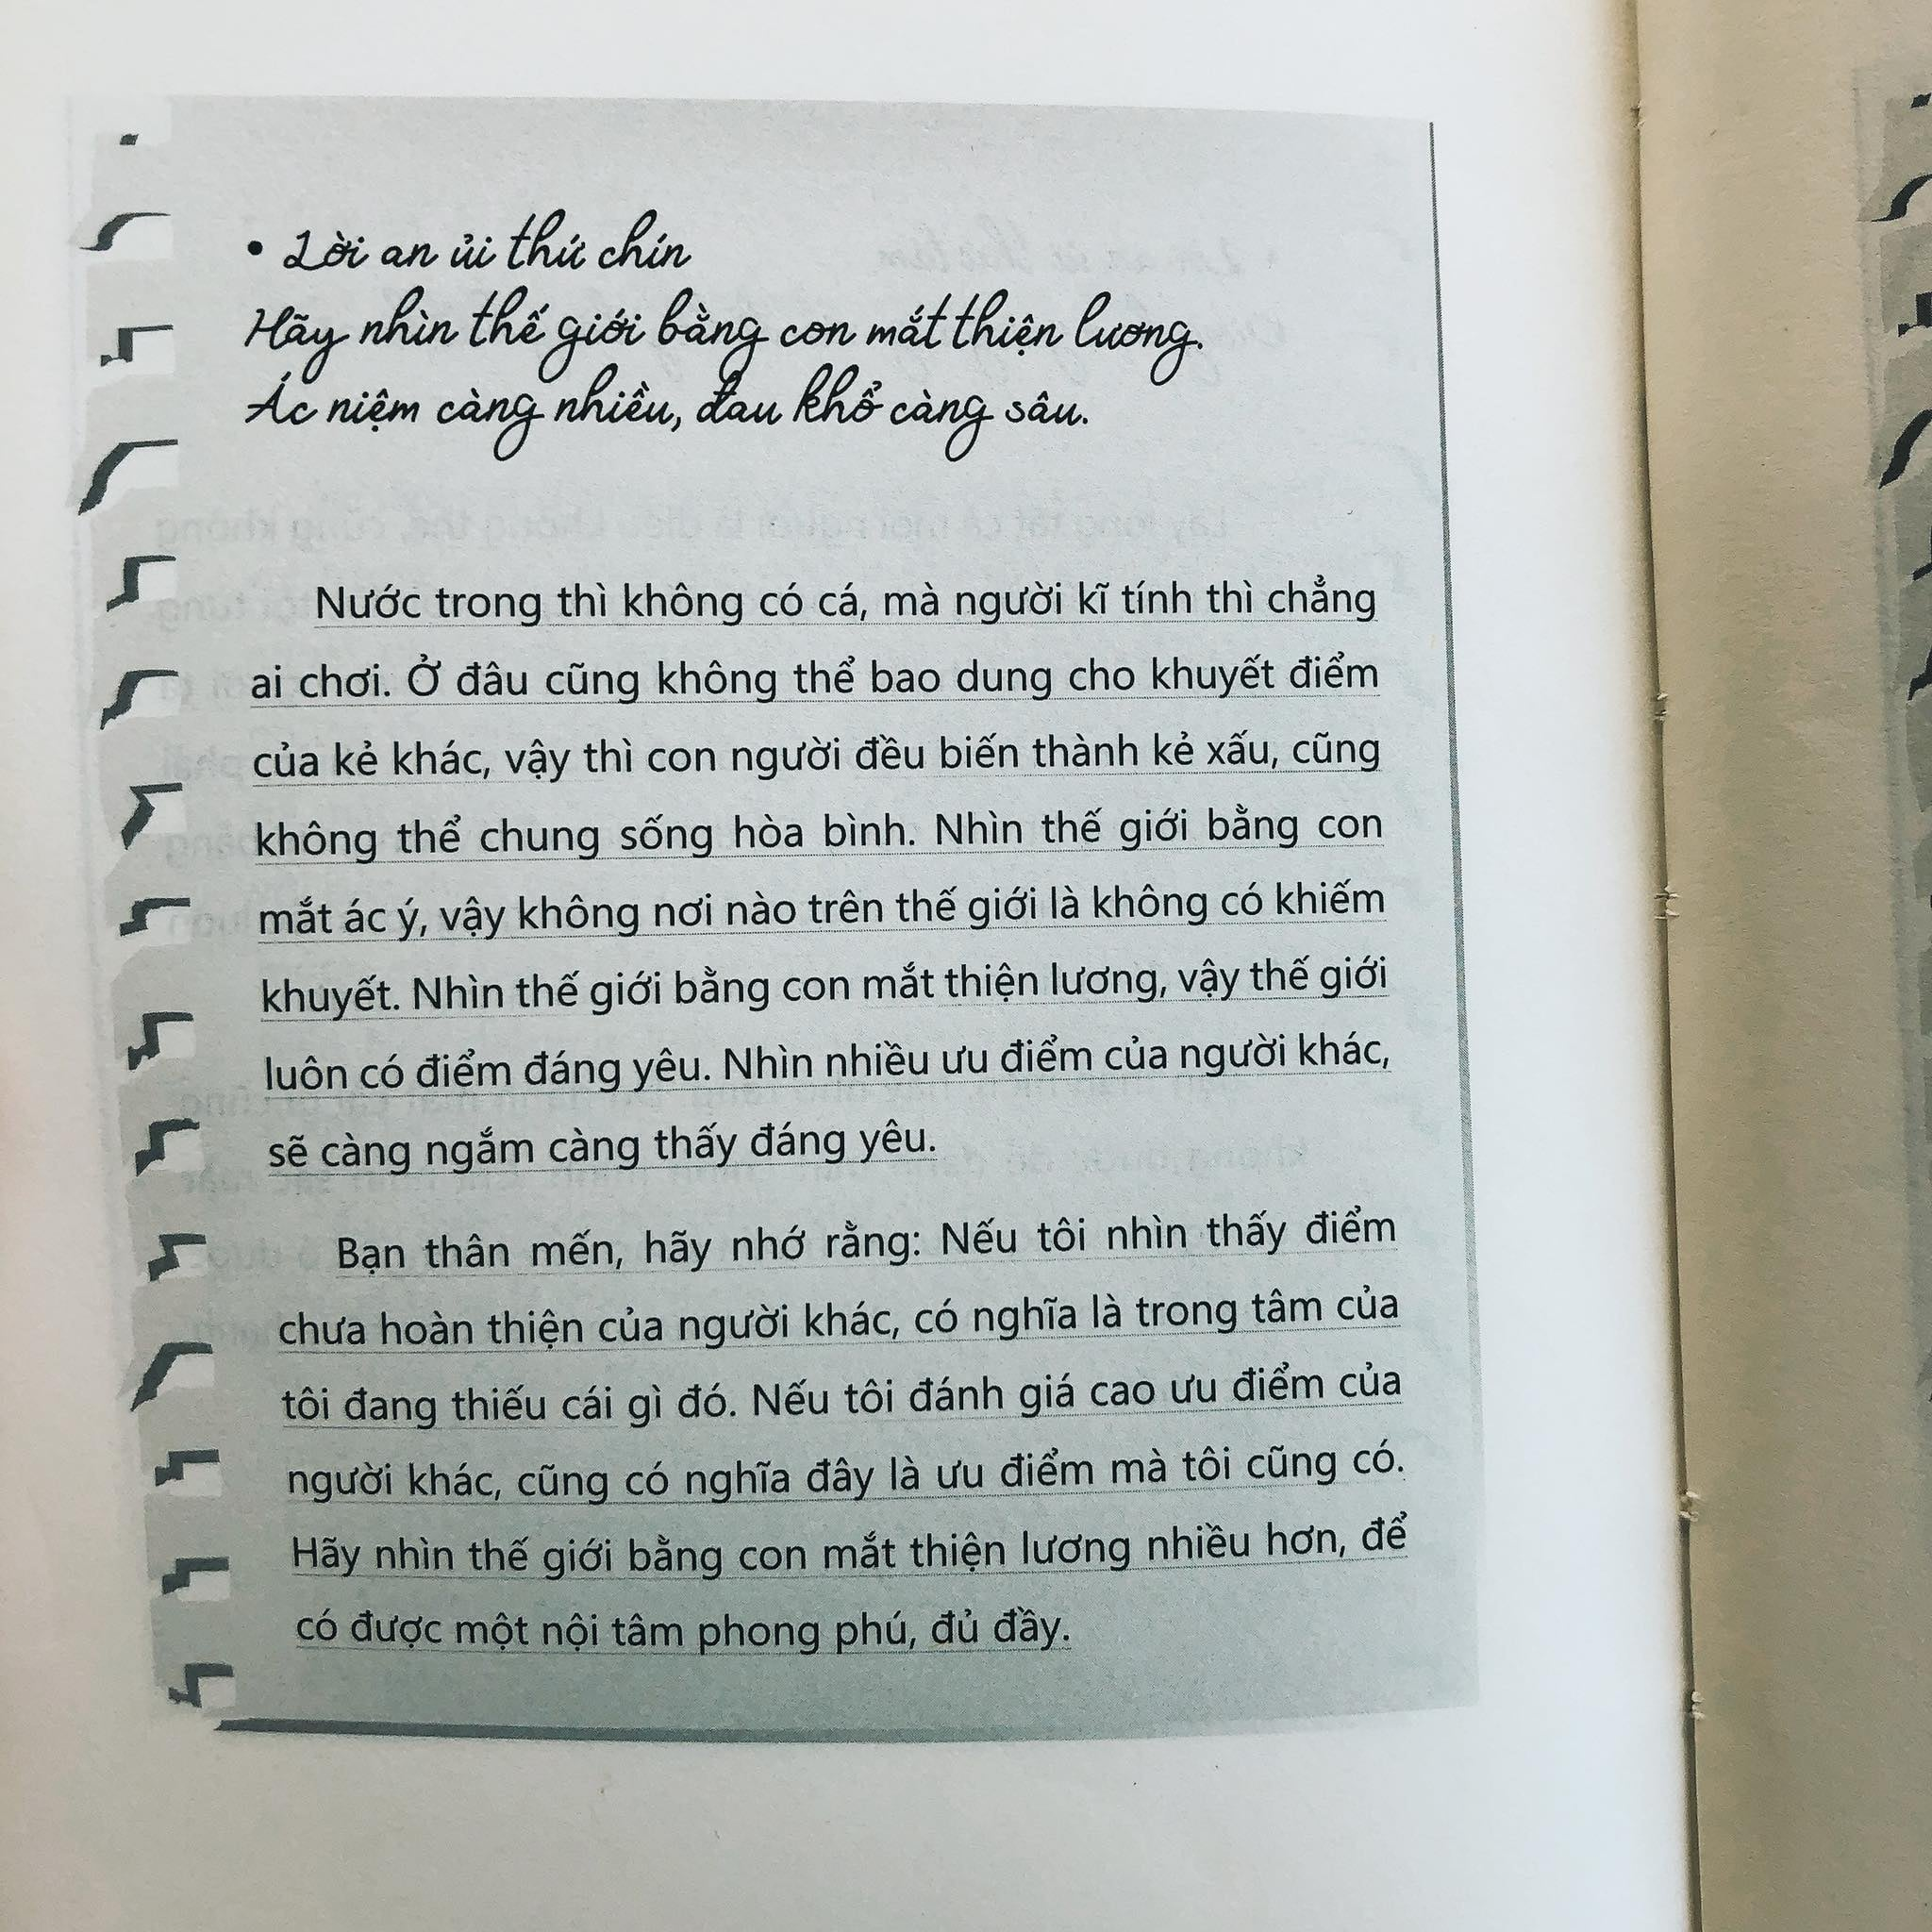 • Lời an ủi thứ chín
Hãy nhìn thế giới bằng con mắt thiện lương.
Ác niệm càng nhiều, đau khổ càng sâu.
Nước trong thì không có cá, mà người kĩ tính thì chẳng
ai chơi. Ở đâu cũng không thể bao dung cho khuyết điểm
của kẻ khác, vậy thì con người đều biến thành kẻ xấu, cũng
không thể chung sống hòa bình. Nhìn thế giới bằng con
mắt ác ý, vậy không nơi nào trên thế giới là không có khiếm
khuyết. Nhìn thế giới bằng con mắt thiện lương, vậy thế giới
luôn có điểm đáng yêu. Nhìn nhiều ưu điểm của người khác,
sẽ càng ngắm càng thấy đáng yêu.
Bạn thân mến, hãy nhớ rằng: Nếu tôi nhìn thấy điểm
chưa hoàn thiện của người khác, có nghĩa là trong tâm của
tôi đang thiếu cái gì đó. Nếu tôi đánh giá cao ưu điểm của
người khác, cũng có nghĩa đây là ưu điểm mà tôi cũng có.
Hãy nhìn thế giới bằng con mắt thiện lương nhiều hơn, để
có được một nội tâm phong phú, đủ đầy.